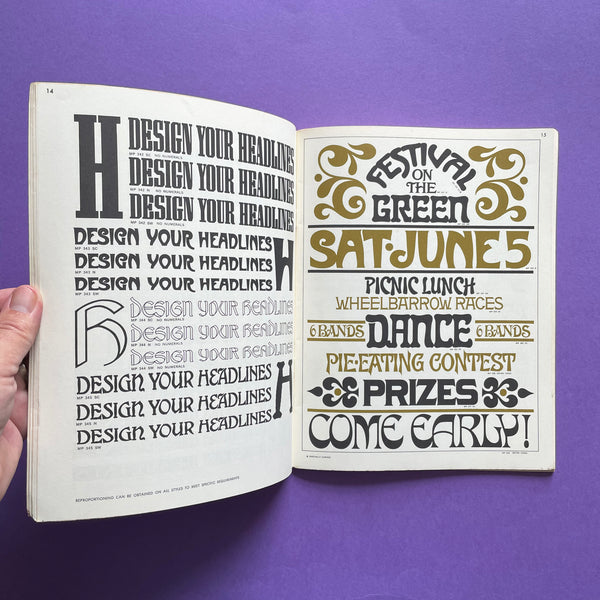 14
H
DESIGN YOUR HEADLINES
MP 342 SC NO NUMERALS
DESIGN YOUR HEADLINES
MP 342 N NO NUMERALS
DESIGN YOUR HEADLINES
MP 342 SW NO NUMERALS
DESIGN YOUR HEADLINES
MP 343 SC
DESIGN YOUR HEADLINES
MP 343 N
DESIGN YOUR HEADLINES
MP 343 SW
H
H
DESIGN YOUR HEADLINES
MP 344 SC NO NUMERALS
DESIGN YOUR HEADLINES
MP 344 N NO NUMERALS
DESIGN YOUR HEADLINES
MP 344 SW NO NUMERALS
DESIGN YOUR HEADLINES
MP 345 SC
DESIGN YOUR HEADLINES
MP 345 N
DESIGN YOUR HEADLINES
MP 345 SW
H
REPROPORTIONING CAN BE OBTAINED ON ALL STYLES TO MEET SPECIFIC REQUIREMENTS.
15
FESTIVAL
ON
THE
GREEN
SAT·JUNE 5
PICNIC LUNCH
WHEELBARROW RACES
6 BANDS DANCE 6 BANDS
PIE-EATING CONTEST
PRIZES
COME EARLY!